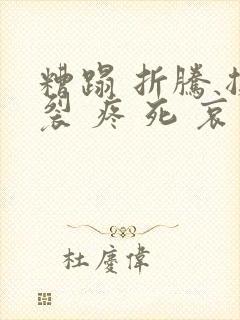 糟蹋 折騰
裂 疼 死 哀
杜慶偉